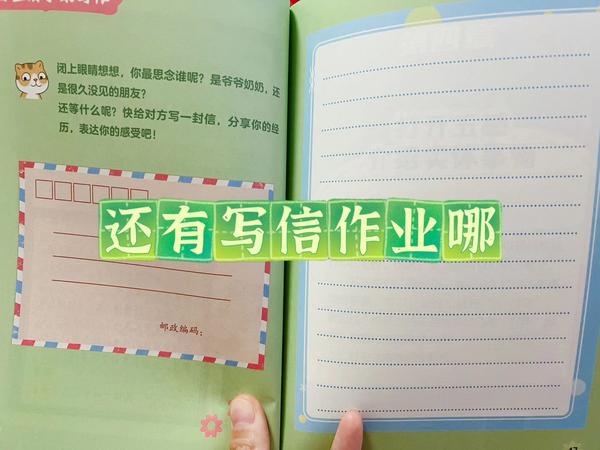 闭上眼睛想想，你最思念谁呢？是爷爷奶奶，还
是很久没见的朋友？
还等什么呢？快给对方写一封信，分享你的经
历，表达你的感受吧！
还有写信作业哪
邮政编码：